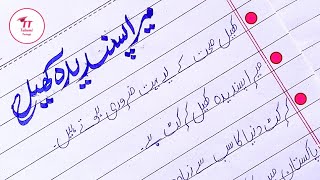 TT
میرا پسندیدہ کھیل
کھیل صحت کے لیے بہت ضروری ہوتے ہیں۔
میرا پسندیدہ کھیل کرکٹ ہے۔
کرکٹ دنیا کا سب سے زیادہ
پاکستان میں